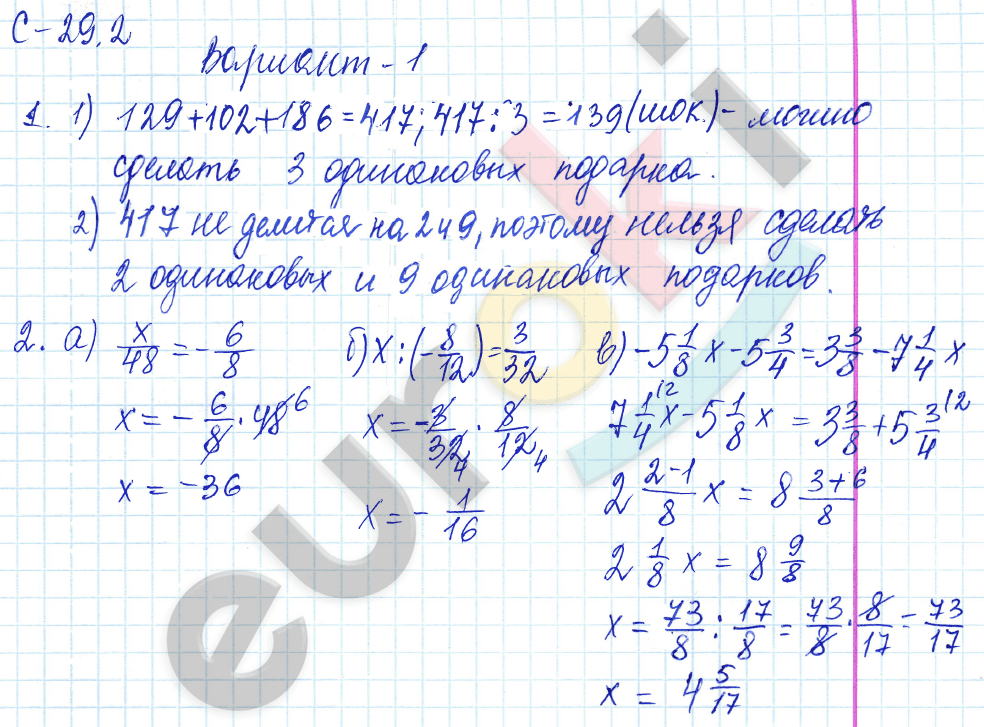 С-29.2
Вариант-1
1. 1) 129+102+186=417; 417:3=139(шок.)- можно
сделать 3 одинаковых подарка.
2) 417 не делится на 2 и 9, поэтому нельзя сделать
2 одинаковых и 9 одинаковых подарков.
2. а) x/48 = -6/8
x = -6/8 · 48 6
x = -36
б) x : (-8/12) = 3/32
x = -3/32 4 · 8/12 4
x = -1/16
в) -5 1/8 x - 5 3/4 = 3 3/8 - 7 1/4 x
7 1/4 (2 x - 5 1/8 x = 3 3/8 + 5 3/4 (2
2 2-1/8 x = 8 3+6/8
2 1/8 x = 8 9/8
x = 73/8 : 17/8 = 73/8 · 8/17 = 73/17
x = 4 5/17
euroki